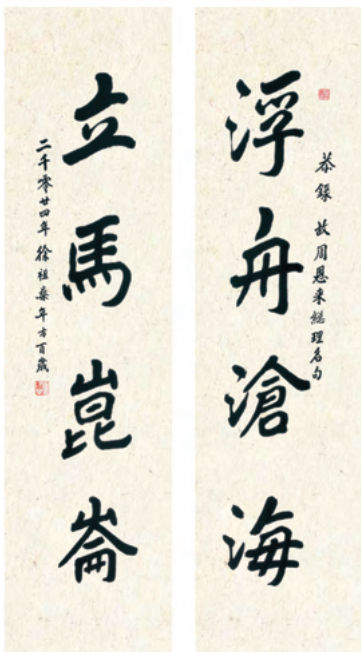 浮舟滄海
恭錄 故周恩来總理名句
立馬崑崙
二千零廿四年 徐祖燊年方百歲